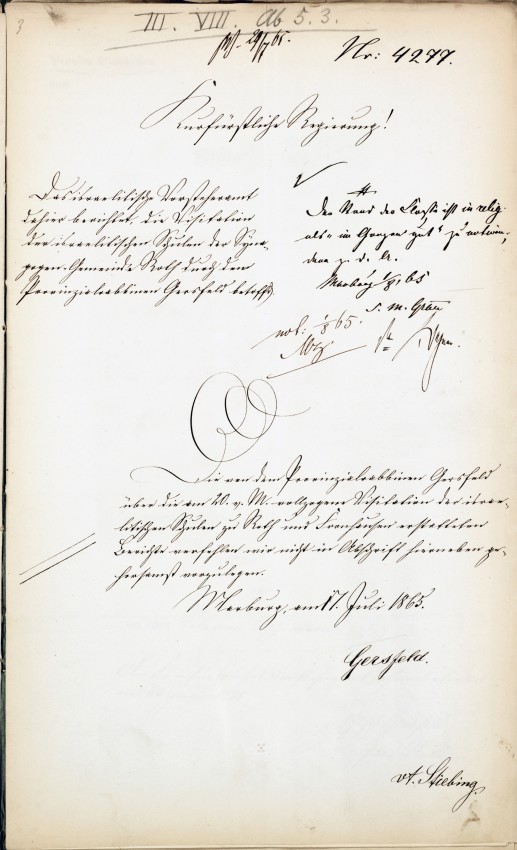 3
III. VIII. Ab 5. 3.
Nr: 4277.
Kurfürstliche Regierung!
Das israelitische Vorsteheramt
dahier berichtet, die Visitation
der israelitischen Schulen der Syna-
gogen-Gemeinde Roth durch den
Provinzialrabbinen Gersfeld betreffd.
Der Stand der Classe ist in relig.
als "im Ganzen gut" zu notiren,
dann z. d. A.
Marburg 1/8, 65
not: 1/8 65.
Die von dem Provinzialrabbinen Gersfeld
über die am 20. v. M. vollzogene Visitation der israe-
litischen Schulen zu Roth und Fronhausen erstatteten
Berichte verfehlen wir nicht in Abschrift hierneben ge-
horsamst vorzulegen.
Marburg, am 17. Juli 1865.
Gersfeld.
vt. Stiebing.